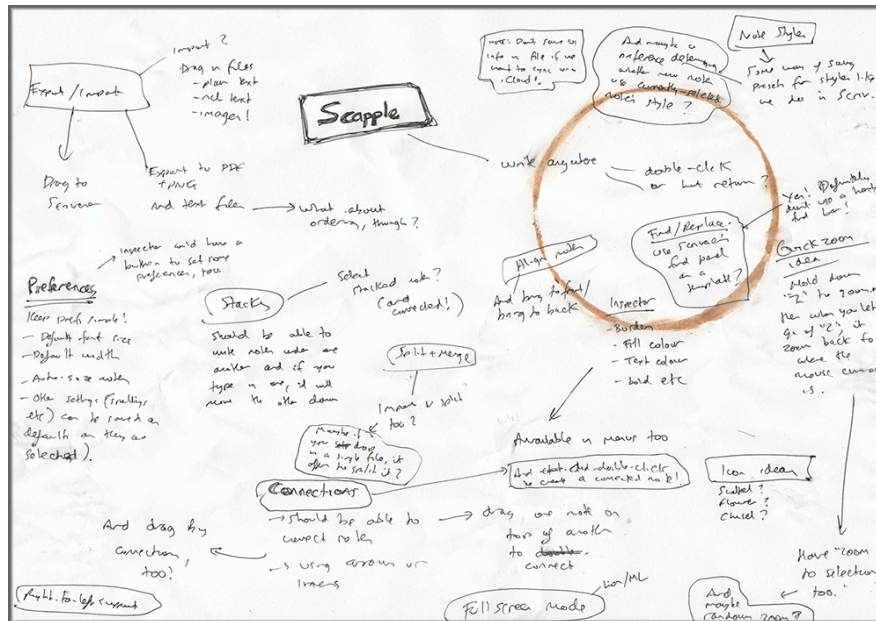 Import?
Drag in files
- plain text
- rich text
- images!
Export/Import
Drag to
Scrivener
Export to PDF
+ PNG
And text files
What about
ordering, though?
Scapple
NOTE: Don't save UI
info in file if we
want to sync via
iCloud!
And maybe a
preference determining
whether new notes
use currently-selected
note's style?
Note Styles
Some way of saving
presets for styles like
we do in Scriv.
Write anywhere
double-click
or hit return?
Yes! Definitely
don't use a horrid
find bar!
Find/Replace.
Use Scrivener's
find panel
as a
template?
Quick zoom
idea
Hold down
"Z" to zoom,
then when you let
go of "Z", it
zooms back to
where the
mouse cursor
is.
Align notes
And bring to front/
bring to back
Inspector
- Border
- Fill colour
- Text colour
- bold etc
Available in menus too
Inspector could have a
button to set some
preferences, too
Preferences
Keep prefs simple!
- Default font size
- Default width
- Auto-size notes
- Other settings (
etc) can be saved as
default on
selected).
Stacks
Select
stacked notes?
(and
connected!)
Should be able to
write notes under one
another and if you
type in one, it will
move the other down
Split + Merge
Import & split
too?
Maybe if
you drop
in a single file, it
offers to split it?
Connections
And double-click
to create a connected note!
should be able to
connect notes
using arrows or
lines
drag one note on
top of another
to
connect
And drag by
connection,
too!
Icon ideas
Scalpel?
Flower?
Chisel?
Have "zoom
to selection
too."
And
maybe
random zoom?
Right-to-left support
Full screen mode
Lion/ML